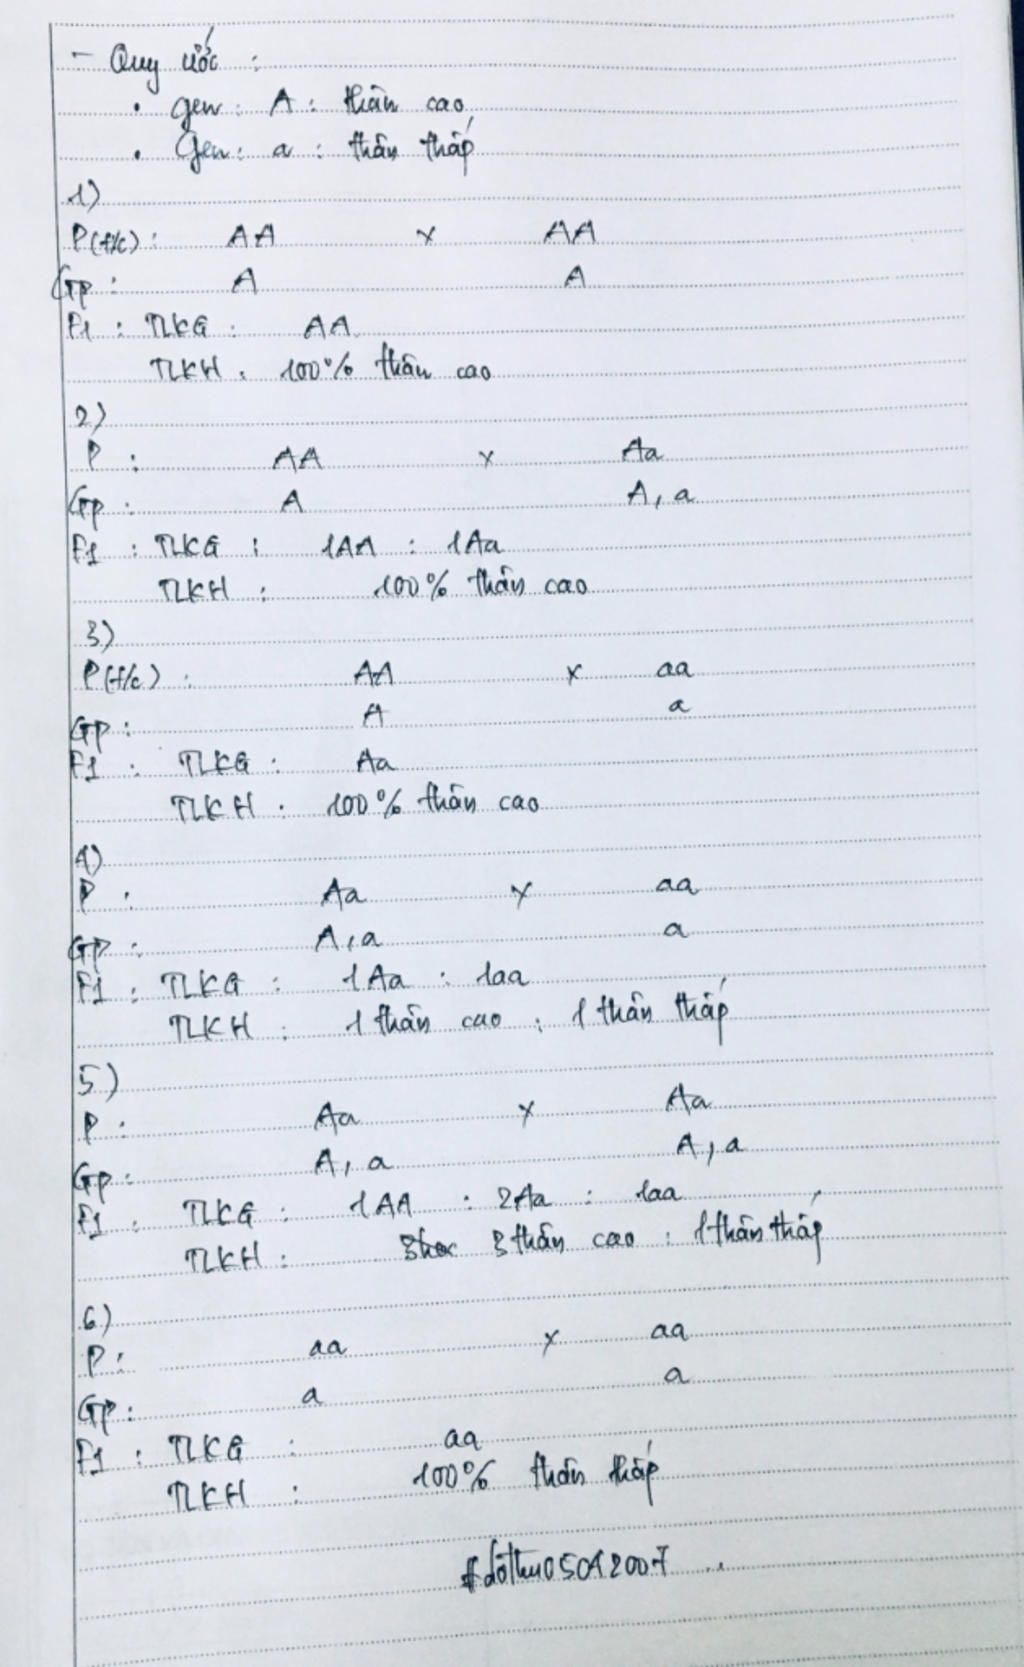 - Quy ước :
• gen : A : thân cao
• Gen : a : thân thấp
1)
P(t/c) : AA x AA
Gp : A A
F1 : TLKG : AA
TLKH : 100% thân cao
2)
P : AA x Aa
Gp : A A, a
F1 : TLKG : 1AA : 1Aa
TLKH : 100% thân cao
3)
P(t/c) : AA x aa
Gp : A a
F1 : TLKG : Aa
TLKH : 100% thân cao
4)
P : Aa x aa
Gp : A, a a
F1 : TLKG : 1Aa : 1aa
TLKH : 1 thân cao : 1 thân thấp
5)
P : Aa x Aa
Gp : A, a A, a
F1 : TLKG : 1AA : 2Aa : 1aa
TLKH : 3 thân cao : 1 thân thấp
6)
P : aa x aa
Gp : a a
F1 : TLKG : aa
TLKH : 100% thân thấp